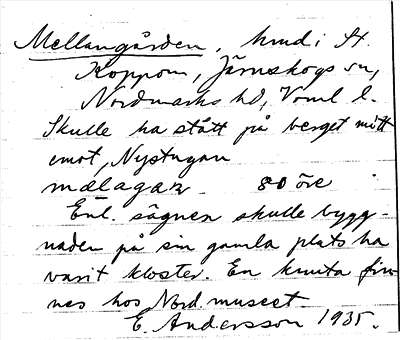 Mellangården, hmd i St.
Koppom, Järnskogs sn,
Nordmarks hd, Vrml l.
Skulle ha stått på berget mitt
emot, Nystugan
mælagaɴ 80 öre
Enl. sägnen skulle bygg-
naden på sin gamla plats ha
varit kloster. En knuta fin-
nes hos Nord. museet.
E. Andersson 1935.